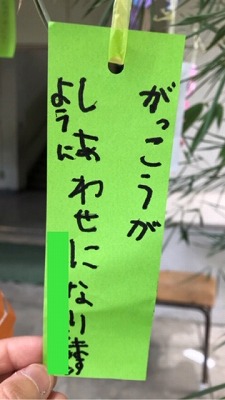 がっこうが
しあわせになります
ように